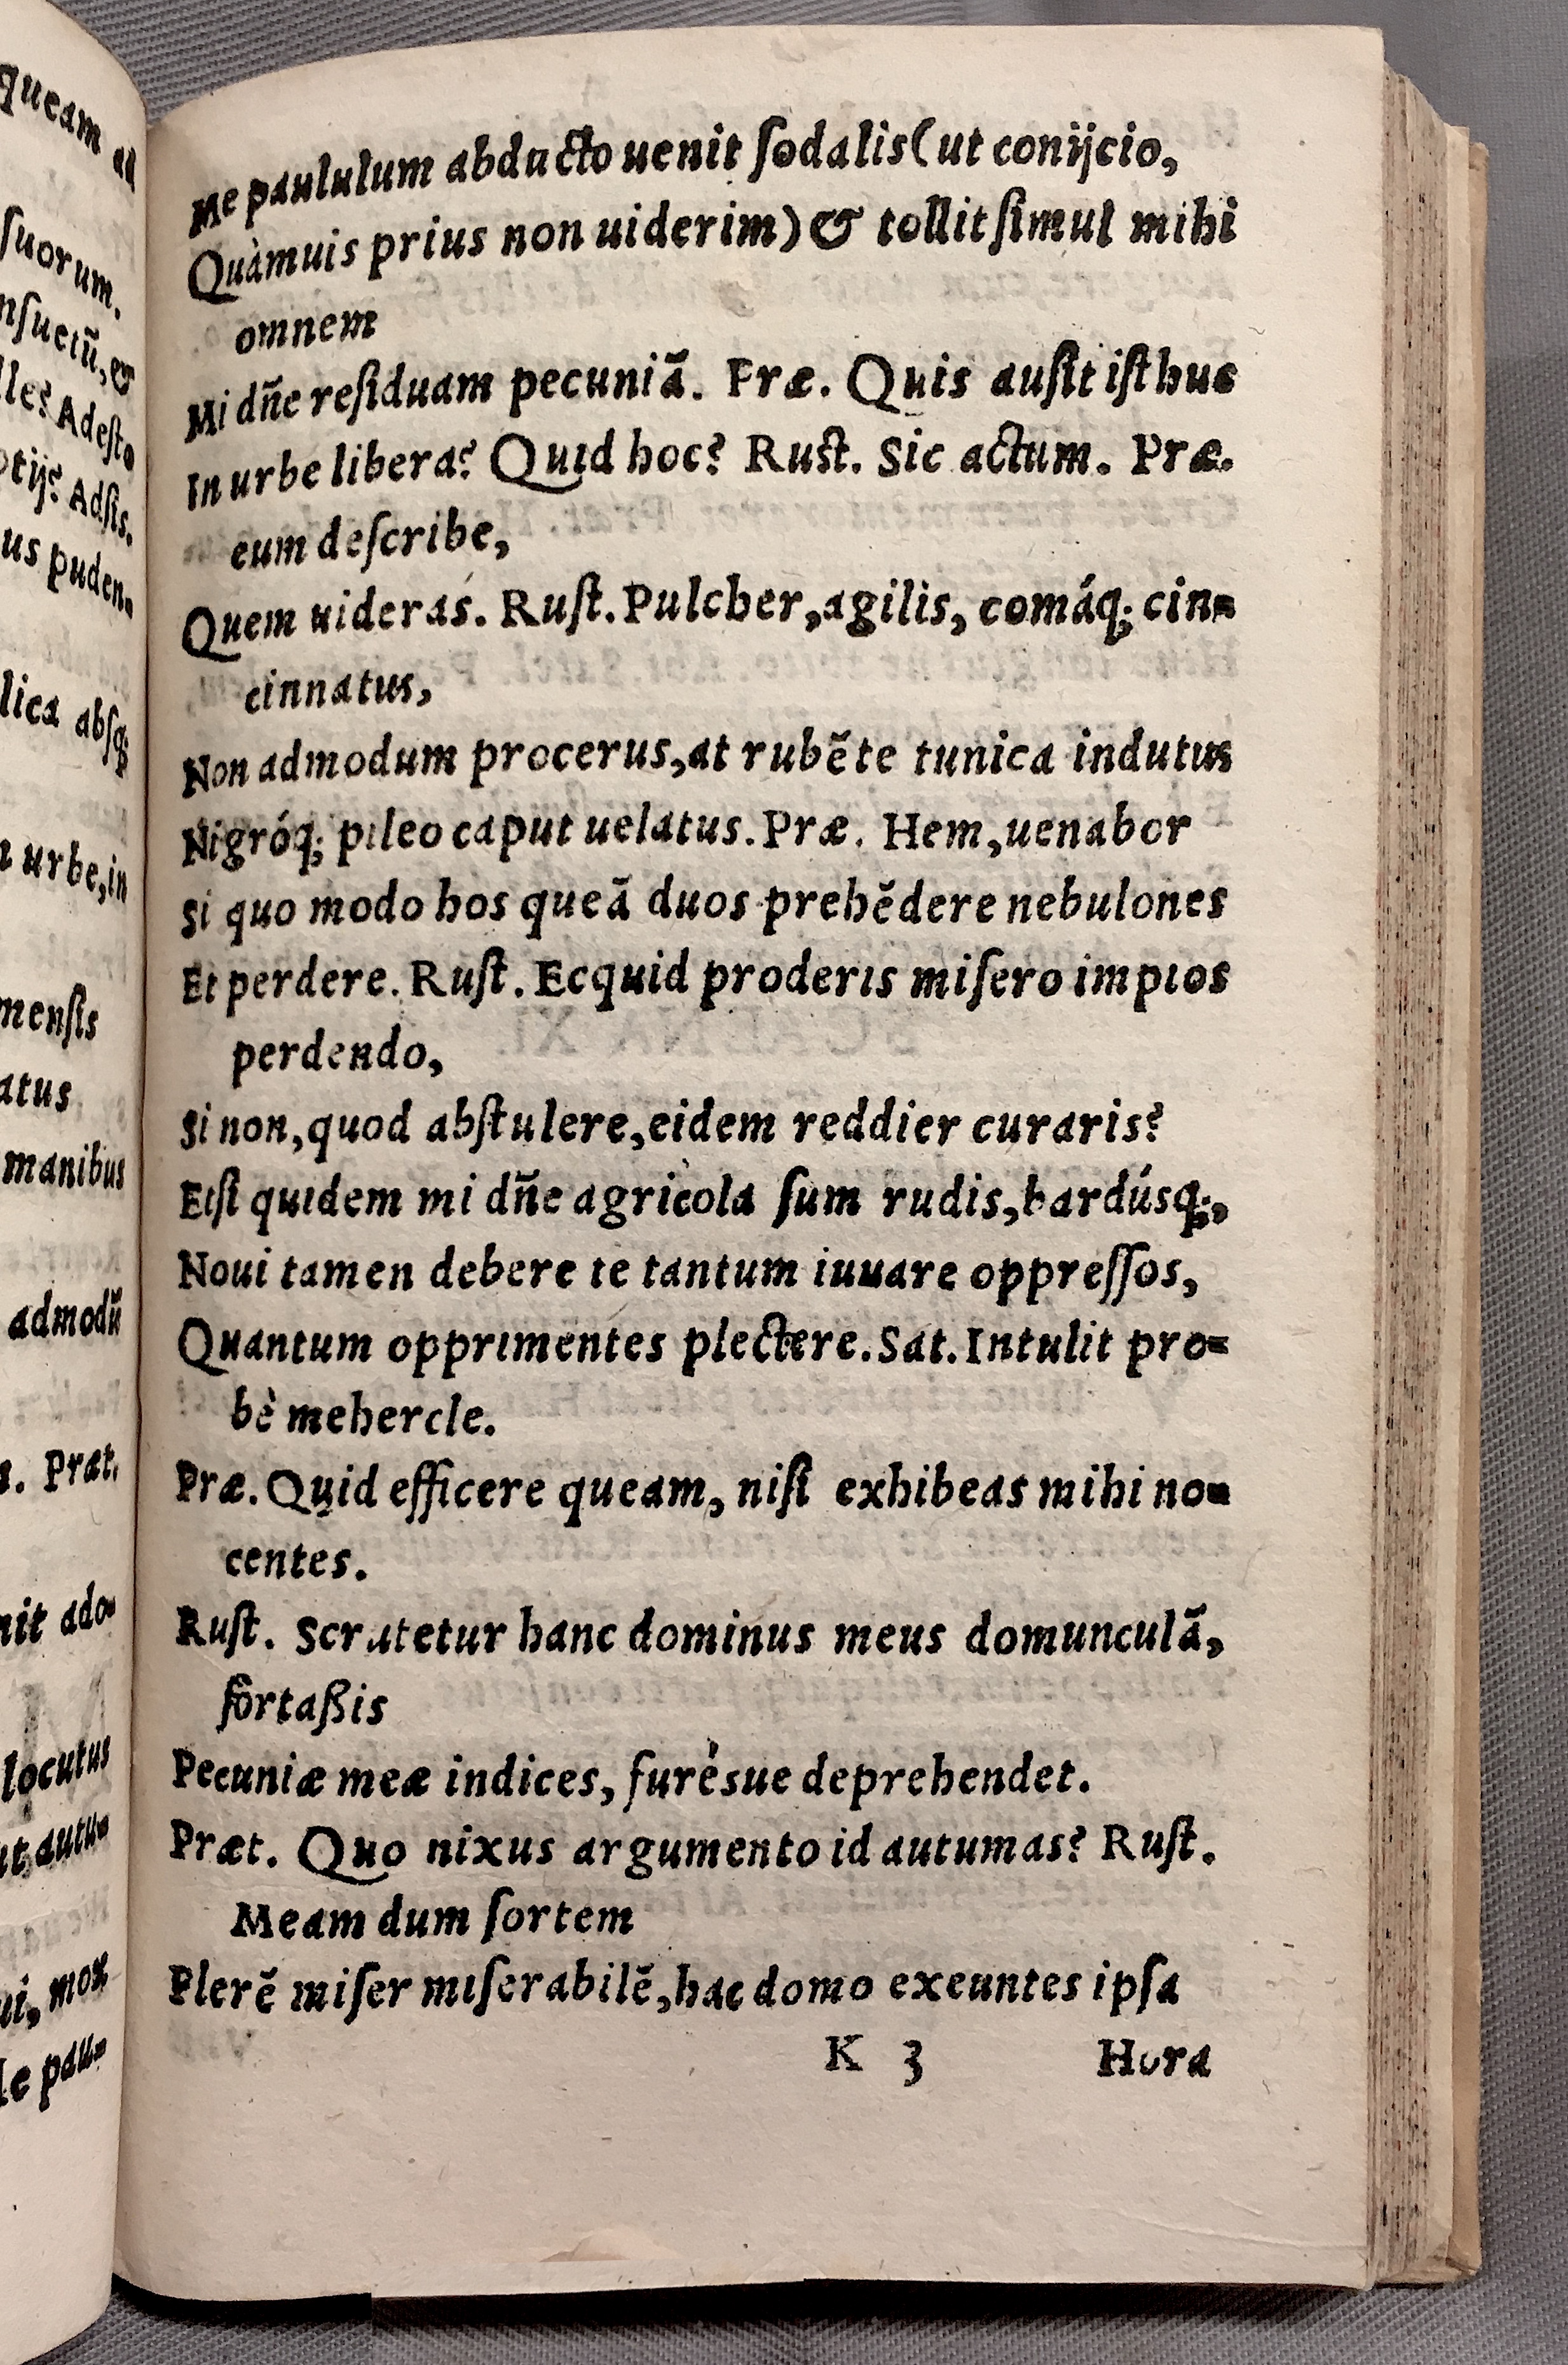 queam ad
suorum.
nsuetū, &
lle? Adesto
otijs? Adsis.
us puden-
lica absq;
urbe, in
mensis
atus
manibus
admodū
Præt.
nit ado-
locutus
ut autu-
ui, mox
le pau-
Me paululum abducto uenit ſodalis (ut conijcio,
Quàmuis prius non uiderim) & tollit ſimul mihi
omnem
Mi dñe reſiduam pecuniã. Præ. Quis auſit iſthuc
In urbe libera? Quid hoc? Ruſt. Sic actum. Præ.
eum deſcribe,
Quem uideras. Ruſt. Pulcher, agilis, comáq; cin-
cinnatus,
Non admodum procerus, at rubẽte tunica indutus
Nigróq; pileo caput uelatus. Præ. Hem, uenabor
Si quo modo hos queã duos prehẽdere nebulones
Et perdere. Ruſt. Ecquid proderis miſero impios
perdendo,
Si non, quod abſtulere, eidem reddier curaris?
Etſi quidem mi dñe agricola ſum rudis, bardúsq;,
Noui tamen debere te tantum iuuare oppreſſos,
Quantum opprimentes plectere. Sat. Intulit pro-
bè mehercle.
Præ. Quid efficere queam, niſi exhibeas mihi no-
centes.
Ruſt. Scrutetur hanc dominus meus domunculã,
fortaßis
Pecuniæ meæ indices, furésue deprehendet.
Præt. Quo nixus argumento id autumas? Ruſt.
Meam dum ſortem
Flerẽ miſer miſerabilẽ, hac domo exeuntes ipſa
K 3 Hora